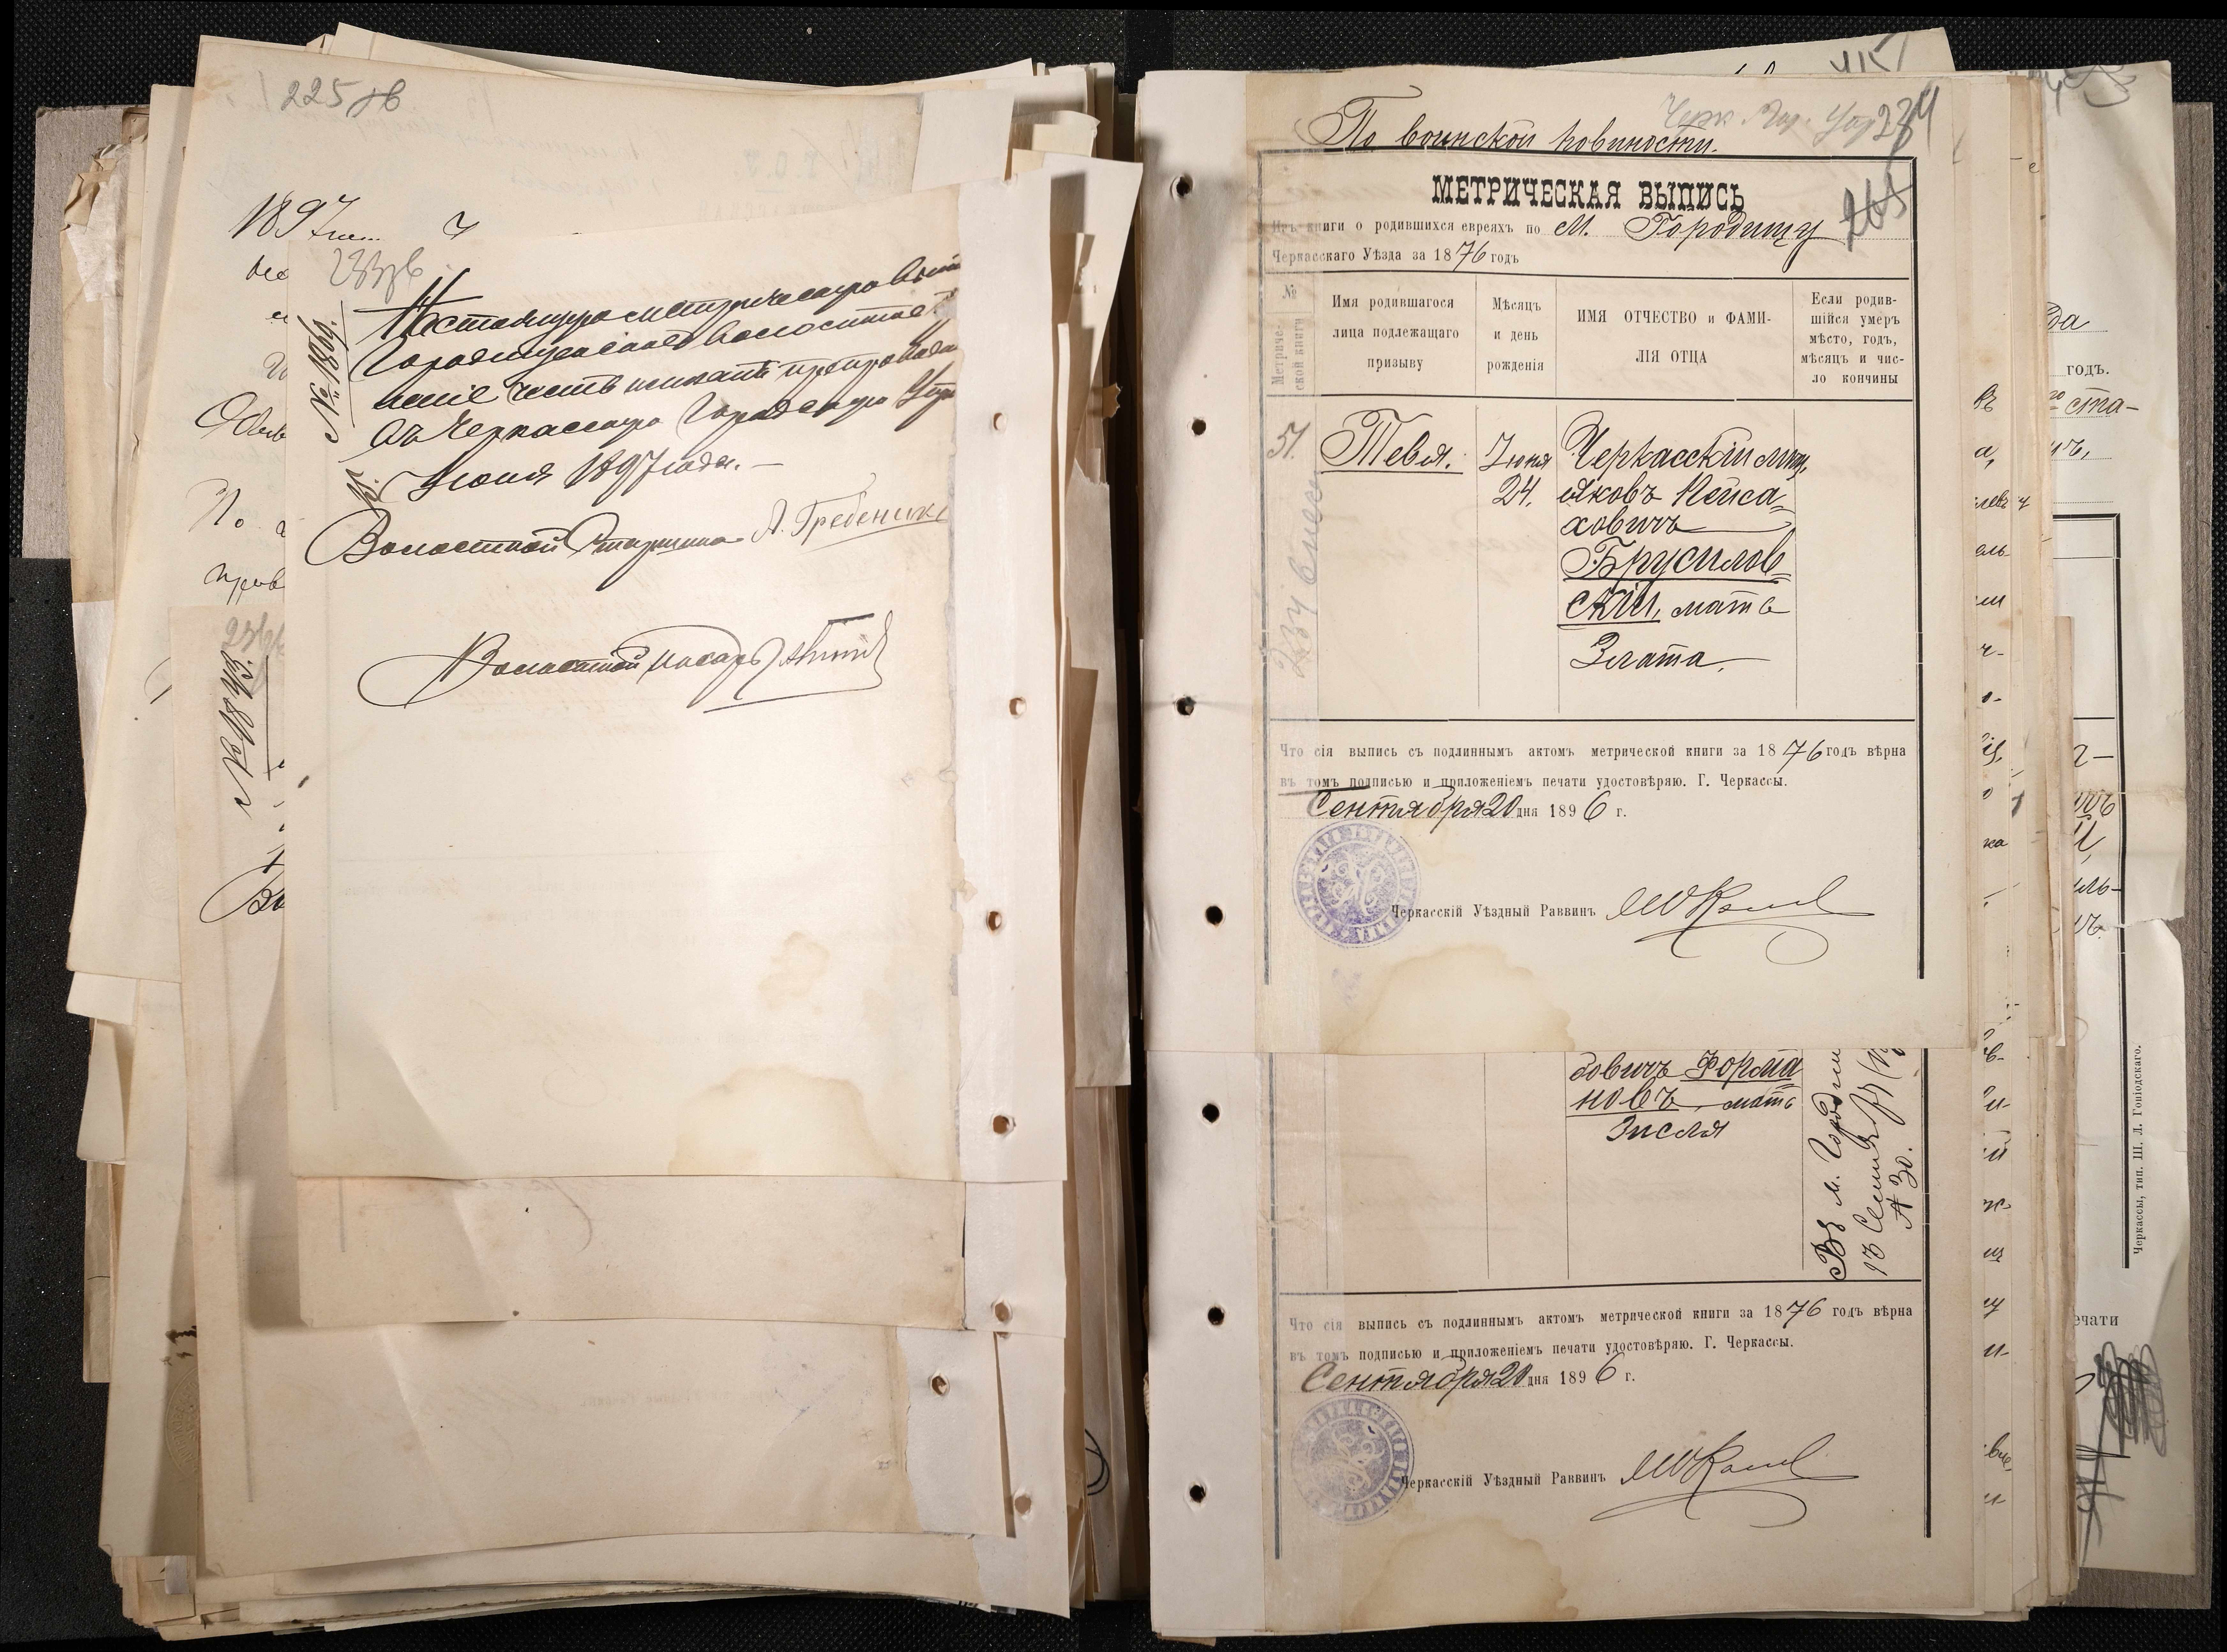 225 об
1897
233 об
№ 1869.
Настоящую метрическую выпи
Городищенское волостное
ніе честь имѣетъ препровод
въ Черкасскую Городскую Упр
15 Іюня 1897 года.—
Волостной Старшина А. Гребеник
Волостной писарь
№ 1843.
По
прав
Во
Черк. Гор. Упр 234
По воинской повиности.
МЕТРИЧЕСКАЯ ВЫПИСЬ
265
Изъ книги о родившихся евреяхъ по М. Городищу
Черкасскаго Уѣзда за 1876 годъ
№ Метрической книги
Имя родившагося лица подлежащаго призыву
Мѣсяцъ и день рожденія
ИМЯ ОТЧЕСТВО и ФАМИЛІЯ ОТЦА
Если родившійся умеръ мѣсто, годъ, мѣсяцъ и число кончины
51. Тевя. Іюня Черкасскій мѣщ.
24. Яковъ Пейса=
ховичъ
Брусилов=
скій, мать
Злата.
234
Что сія выпись съ подлиннымъ актомъ метрической книги за 1876 годъ вѣрна
въ томъ подписью и приложеніемъ печати удостовѣряю. Г. Черкассы.
Сентября 20 дня 1896 г.
Черкасскій Уѣздный Раввинъ
бовичъ Форма
новъ, мать
Зисля
Въ м. Городищ
13 Сентяб
А 30.
Что сія выпись съ подлиннымъ актомъ метрической книги за 1876 годъ вѣрна
въ томъ подписью и приложеніемъ печати удостовѣряю. Г. Черкассы.
Сентября 20 дня 1896 г.
Черкасскій Уѣздный Раввинъ
да
годъ.
го ста-
ечати
Черкассы, тип. Ш. Л. Гоніодскаго.